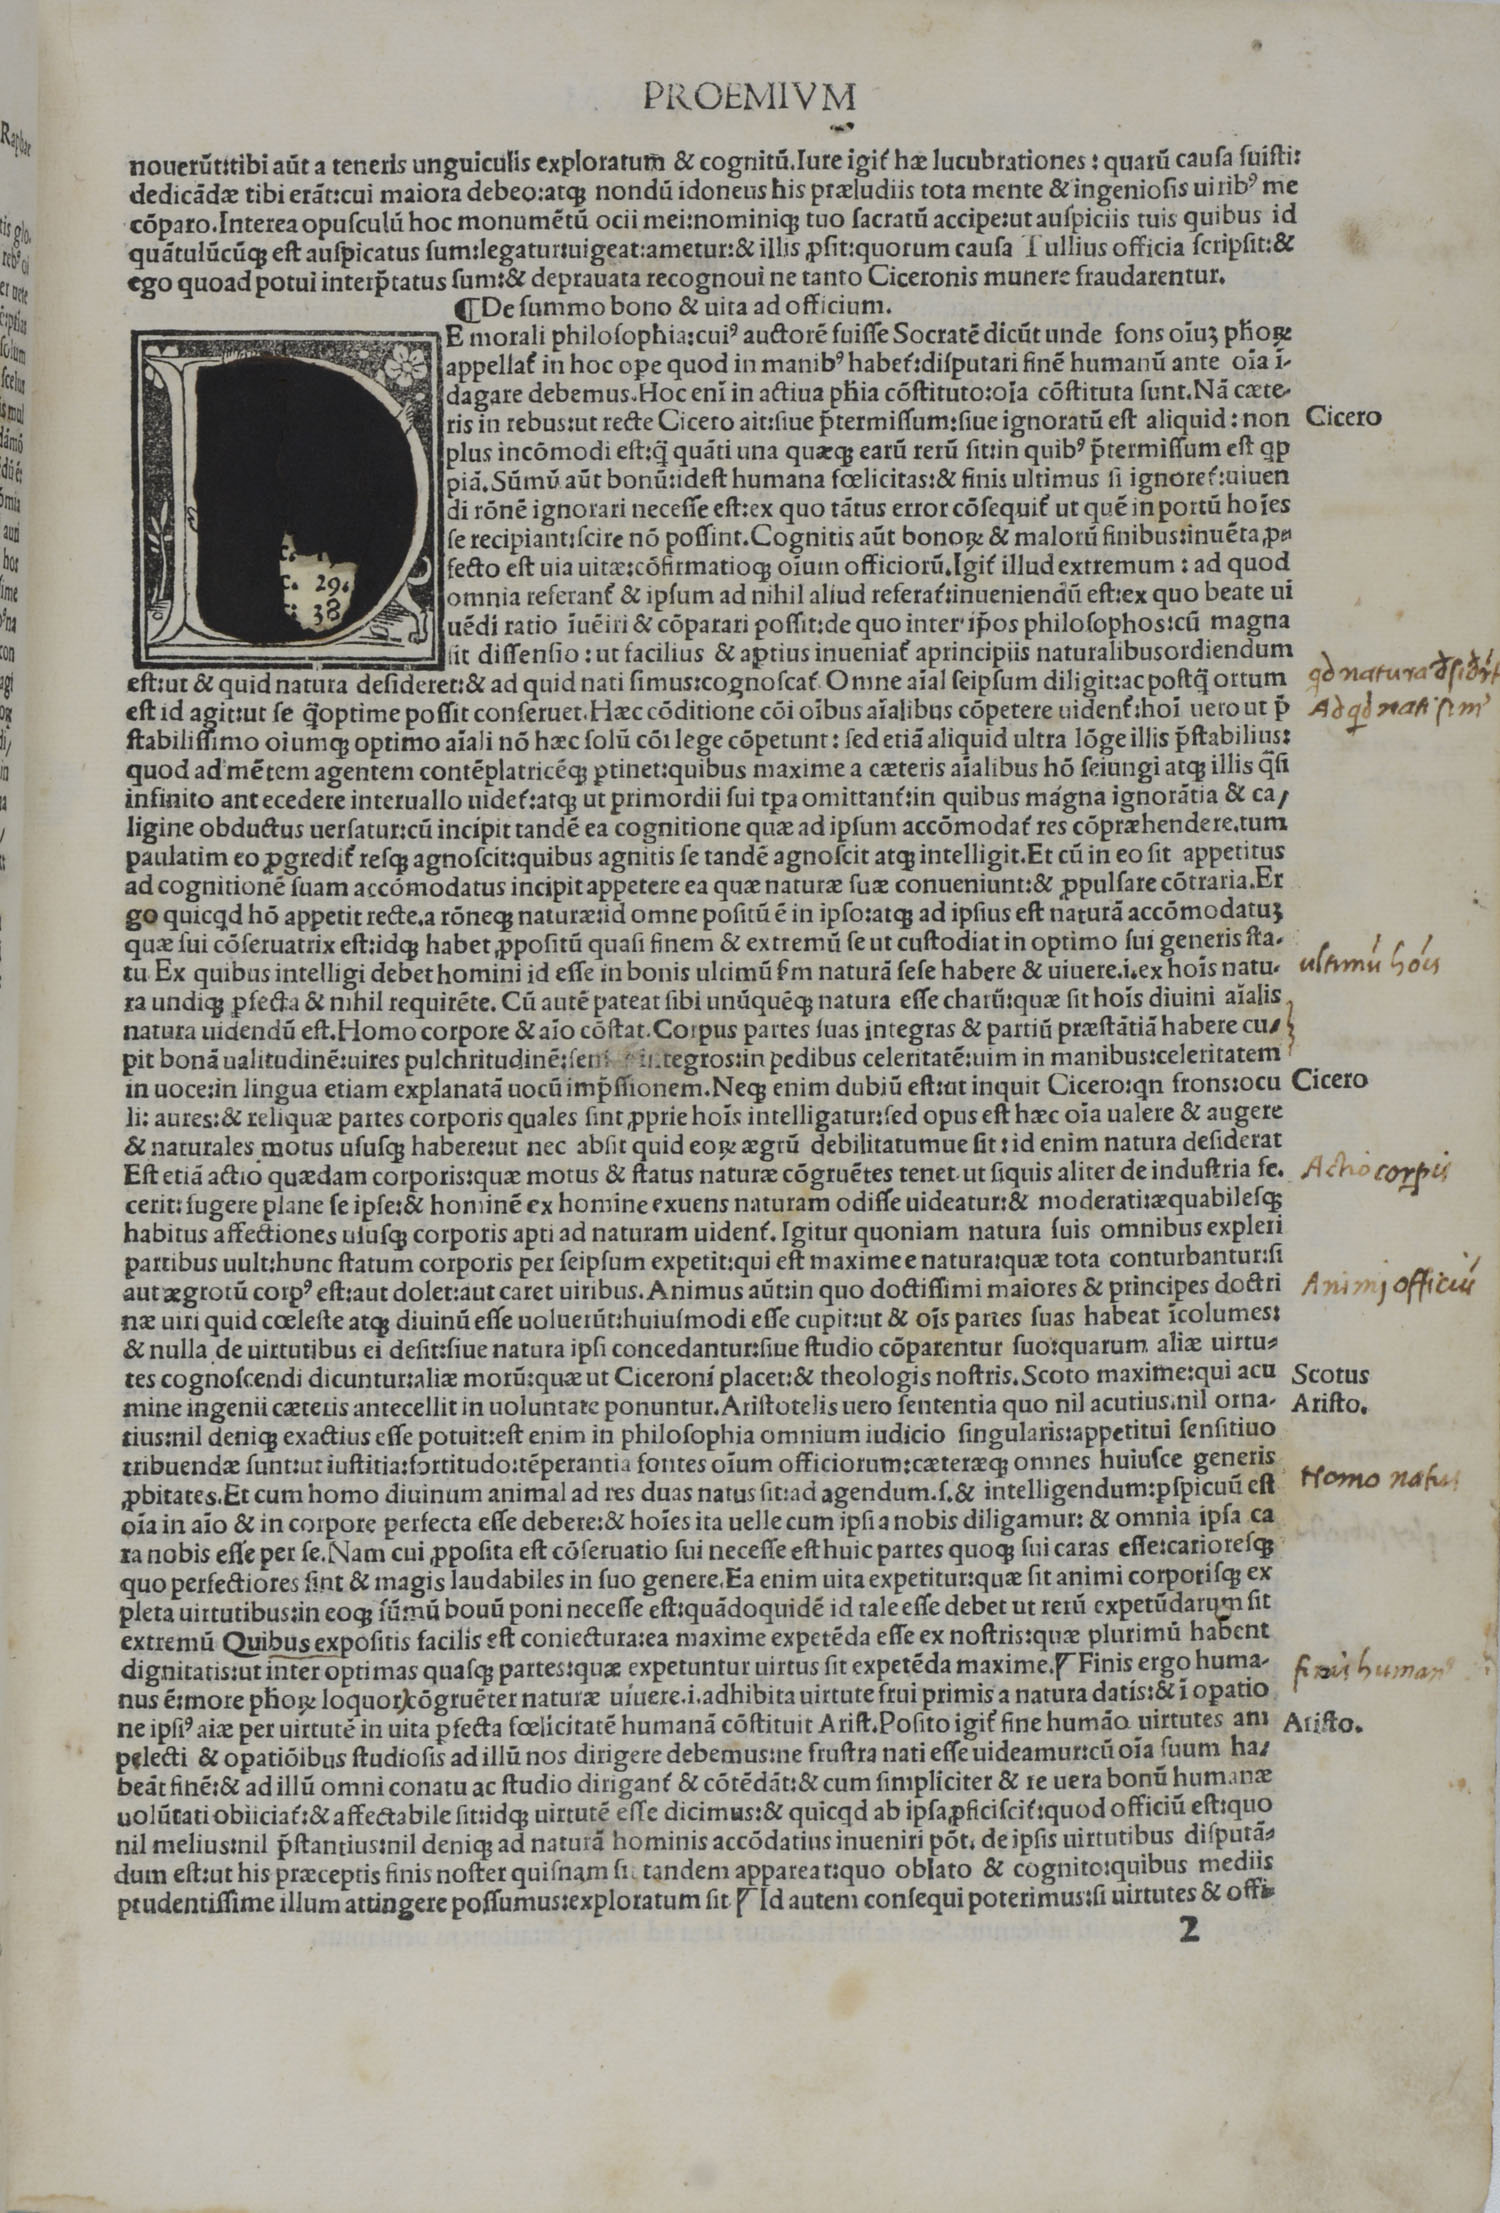 PROEMIVM
nouerūt:tibi aūt a teneris unguiculis exploratum & cognitū.Iure igit̃ hæ lucubrationes: quarū causa suisti:
dedicādæ tibi erāt:cui maiora debeo:atqꝫ nondū idoneus his præludiis tota mente & ingeniosis uiribꝰ me
cōparo.Interea opusculū hoc monumētū ocii mei:nominiqꝫ tuo sacratū accipe:ut auspiciis tuis quibus id
quātulūcūqꝫ est auspicatus sum:legatur:uigeat:ametur:& illis ꝓsit:quorum causa Tullius officia scripsit:&
ego quoad potui interp̃tatus sum:& deprauata recognoui ne tanto Ciceronis munere fraudarentur.
¶De summo bono & uita ad officium.
DE morali philosophia:cuiꝰ auctorē fuisse Socratē dicūt unde fons oīuꝫ pħoꝝ
appellat̃ in hoc oꝑe quod in manibꝰ habet̃:disputari finē humanū ante oīa ī-
dagare debemus.Hoc enī in actiua pħia cōstituto:oīa cōstituta sunt.Nā cæte-
ris in rebus:ut recte Cicero ait:siue p̃termissum:siue ignoratū est aliquid: non
plus incōmodi est:q̃ quāti una quæqꝫ earū rerū sit:in quibꝰ p̃termissum est qp
piā.Sūmū aūt bonū:idest humana fœlicitas:& finis ultimus si ignoret̃:uiuen
di rōnē ignorari necesse est:ex quo tātus error cōsequit̃ ut quē in portū hoīes
se recipiant:scire nō possint.Cognitis aūt bonoꝝ & malorū finibus:inuēta ꝓ-
fecto est uia uitæ:cōfirmatioqꝫ oīum officiorū.Igit̃ illud extremum: ad quod
omnia referant̃ & ipsum ad nihil aliud referat̃:inueniendū est:ex quo beate ui
uēdi ratio īuēiri & cōparari possit:de quo inter ip̄os philosophos:cū magna
sit dissensio: ut facilius & aptius inueniat̃ aprincipiis naturalibusordiendum
est:ut & quid natura desideret:& ad quid nati simus:cognoscat̃ Omne aīal seipsum diligit:ac postq̃ ortum
est id agit:ut se q̃optime possit conseruet.Hæc cōditione cōi oībus aīalibus cōpetere uident̃:hoī uero ut p̃
stabilissimo oiumqꝫ optimo aīali nō hæc solū cōi lege cōpetunt: sed etiā aliquid ultra lōge illis p̃stabilius:
quod ad mētem agentem contēplatricēqꝫ ꝑtinet:quibus maxime a cæteris aīalibus hō seiungi atqꝫ illis q̃si
infinito antecedere interuallo uidet̃:atqꝫ ut primordii sui tꝑa omittant̃:in quibus magna ignorātia & ca/
ligine obductus uersatur:cū incipit tandē ea cognitione quæ ad ipsum accōmodat̃ res cōpræhendere.tum
paulatim eo ꝓgredit̃ resqꝫ agnoscit:quibus agnitis se tandē agnoscit atqꝫ intelligit.Et cū in eo sit appetitus
ad cognitionē suam accōmodatus incipit appetere ea quæ naturæ suæ conueniunt:& ꝓpulsare cōtraria.Er
go quicqd hō appetit recte.a rōneqꝫ naturæ:id omne positū ē in ipso:atqꝫ ad ipsius est naturā accōmodatuꝫ
quæ sui cōseruatrix est:idqꝫ habet ꝓpositū quasi finem & extremū se ut custodiat in optimo sui generis sta-
tu Ex quibus intelligi debet homini id esse in bonis ultimū ẜm naturā sese habere & uiuere.i.ex hoīs natu-
ra undiqꝫ ꝑfecta & nihil requirēte. Cū autē pateat sibi unūquēqꝫ natura esse charū:quæ sit hoīs diuini aīalis
natura uidendū est.Homo corpore & aīo cōstat.Corpus partes suas integras & partiū præstātiā habere cu/
pit bonā ualitudinē:uires pulchritudinē: integros:in pedibus celeritatē:uim in manibus:celeritatem
in uoce:in lingua etiam explanatā uocū imp̃ssionem.Neqꝫ enim dubiū est:ut inquit Cicero:qn frons:ocu
li: aures:& reliquæ partes corporis quales sint ꝓprie hoīs intelligatur:sed opus est hæc oīa ualere & augere
& naturales motus ususqꝫ habere:ut nec absit quid eoꝝ ægrū debilitatumue sit:id enim natura desiderat
Est etiā actio quædam corporis:quæ motus & status naturæ cōgruētes tenet ut siquis aliter de industria fe.
cerit:fugere plane se ipse:& hominē ex homine exuens naturam odisse uideatur:& moderati:æquabilesqꝫ
habitus affectiones ususqꝫ corporis apti ad naturam uident̃. Igitur quoniam natura suis omnibus expleri
partibus uult:hunc statum corporis per seipsum expetit:qui est maxime e natura:quæ tota conturbantur:si
aut ægrotū corpꝰ est:aut dolet:aut caret uiribus.Animus aūt:in quo doctissimi maiores & principes doctri
næ uiri quid cœleste atqꝫ diuinū esse uoluerūt:huiusmodi esse cupit:ut & oīs partes suas habeat īcolumes:
& nulla de uirtutibus ei desit:siue natura ipsi concedantur:siue studio cōparentur suo:quarum aliæ uirtu-
tes cognoscendi dicuntur:aliæ morū:quæ ut Ciceroni placet:& theologis nostris.Scoto maxime:qui acu
mine ingenii cæteris antecellit in uoluntate ponuntur.Aristotelis uero sententia quo nil acutius:nil orna-
tius:nil deniqꝫ exactius esse potuit:est enim in philosophia omnium iudicio singularis:appetitui sensitiuo
tribuendæ sunt:ut iustitia:fortitudo:tēperantia fontes oīum officiorum:cæteræqꝫ omnes huiusce generis
ꝓbitates.Et cum homo diuinum animal ad res duas natus sit:ad agendum.s.& intelligendum:ꝑspicuū est
oīa in aīo & in corpore perfecta esse debere:& hoīes ita uelle cum ipsi a nobis diligamur: & omnia ipsa ca
ra nobis esse per se.Nam cui ꝓposita est cōseruatio sui necesse est huic partes quoqꝫ sui caras esse:carioresqꝫ
quo perfectiores sint & magis laudabiles in suo genere.Ea enim uita expetitur:quæ sit animi corporisqꝫ ex
pleta uirtutibus:in eoqꝫ sūmū bouū poni necesse est:quādoquidē id tale esse debet ut rerū expetūdarum sit
extremū Quibus expositis facilis est coniectura:ea maxime expetēda esse ex nostris:quæ plurimū habent
dignitatis:ut inter optimas quasqꝫ partes:quæ expetuntur uirtus sit expetēda maxime.¶ Finis ergo huma-
nus ē:more pħoꝝ loquor)cōgruēter naturæ uiuere.i.adhibita uirtute frui primis a natura datis:& ī oꝑatio
ne ipsiꝰ aiæ per uirtutē in uita ꝑfecta fœlicitatē humanā cōstituit Arist.Posito igit̃ fine humāo uirtutes ani
pelecti & oꝑatiōibus studiosis ad illū nos dirigere debemus:ne frustra nati esse uideamur:cū oīa suum ha/
beāt finē:& ad illū omni conatu ac studio dirigant̃ & cōtēdāt:& cum simpliciter & re uera bonū humanæ
uolūtati obiiciat̃:& affectabile sit:idqꝫ uirtutē esse dicimus:& quicqd ab ipsa ꝓficiscit̃:quod officiū est:quo
nil melius:nil p̃stantius:nil deniqꝫ ad naturā hominis accōdatius inueniri pōt. de ipsis uirtutibus disputā-
dum est:ut his præceptis finis noster quisnam sit tandem appareat:quo oblato & cognito:quibus mediis
prudentissime illum attingere possumus:exploratum sit ¶ Id autem consequi poterimus:si uirtutes & offi-
2
c. 29.
38
Cicero
qd natura
Ad qd nati sim'
ultimū hoīs
Cicero
Actio corpis
Animj officiū
Scotus
Aristo.
Homo natus
finis human
Aristo.